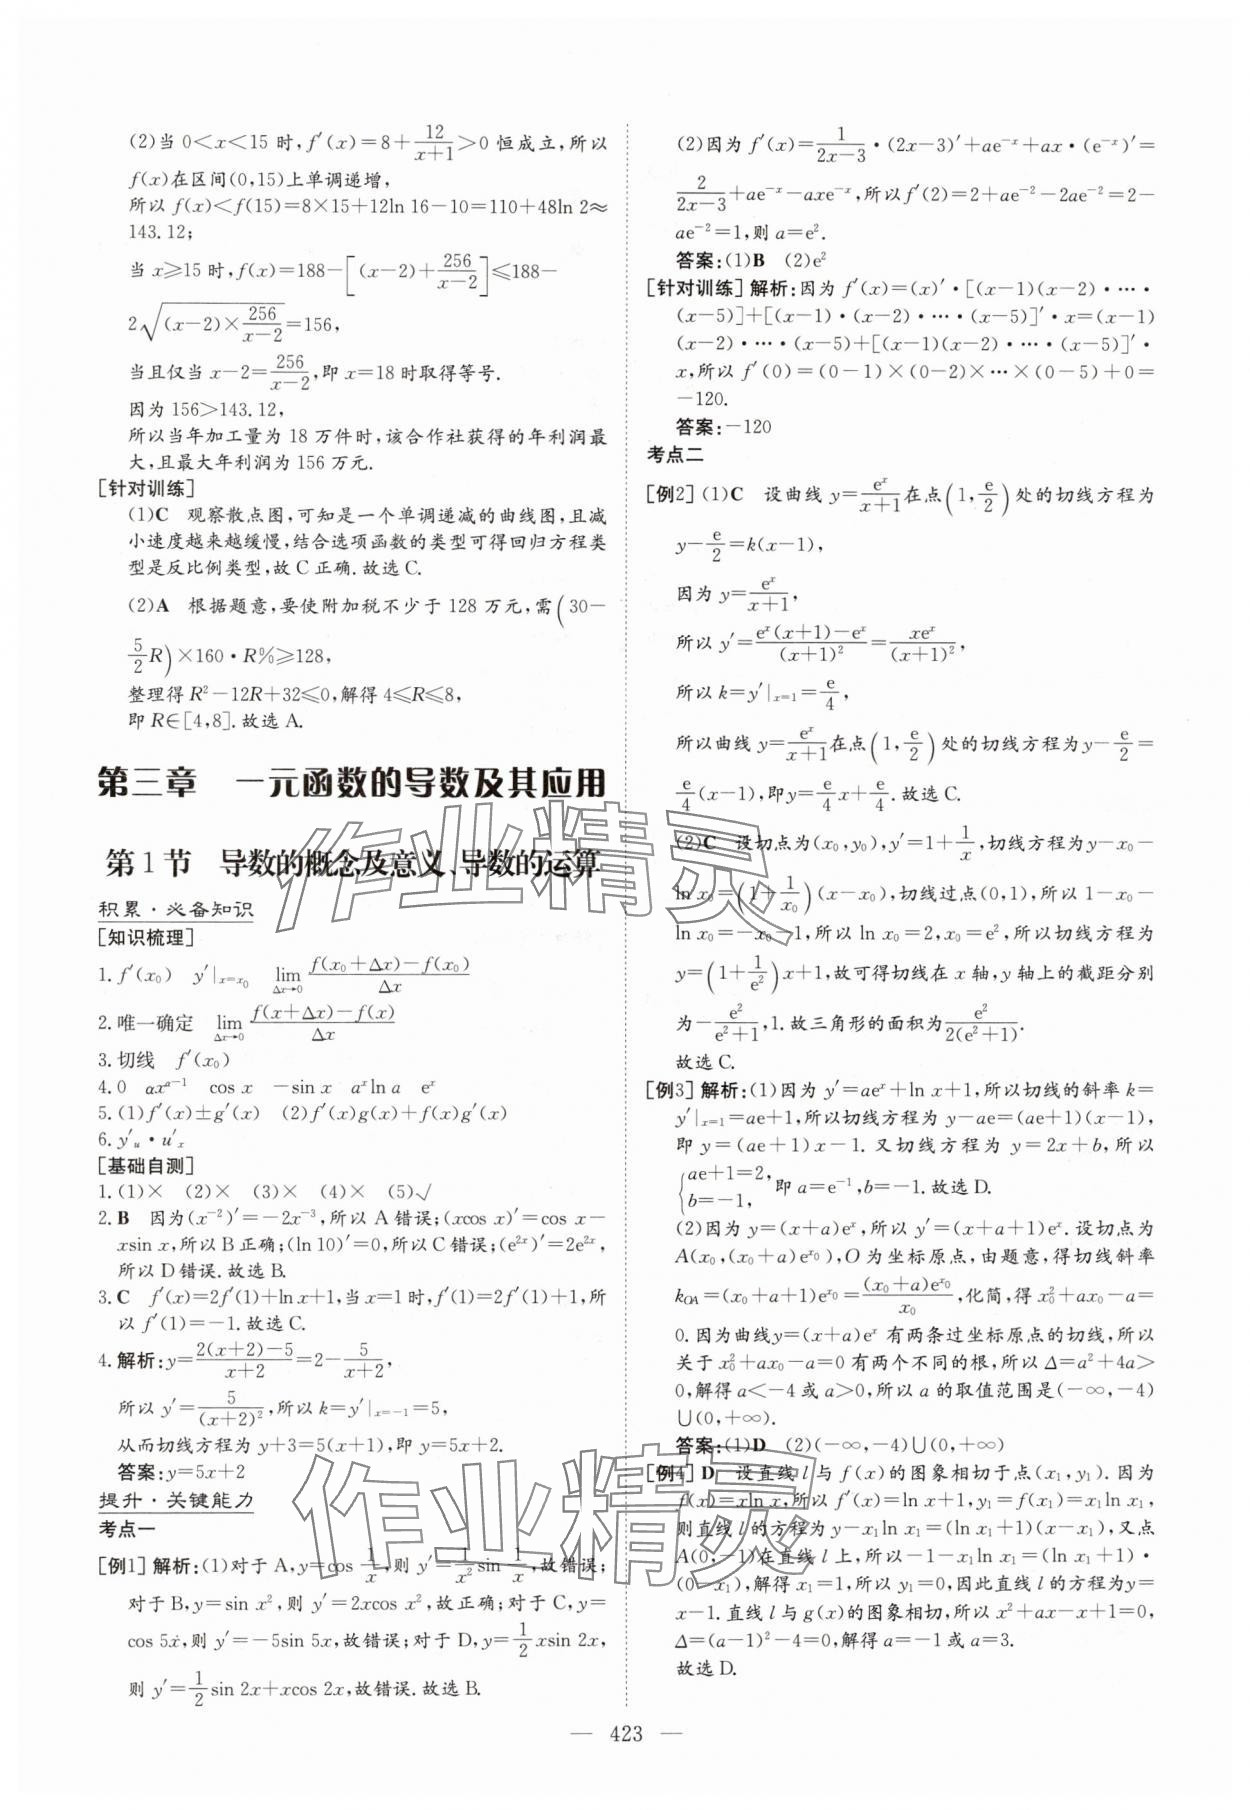 (2)当 0<x<15 时,f′(x)=8+12/(x+1)>0 恒成立,所以
f(x)在区间(0,15)上单调递增,
所以 f(x)<f(15)=8×15+12ln 16-10=110+48ln 2≈
143.12;
当 x≥15 时,f(x)=188-[(x-2)+256/(x-2)]≤188-
2√((x-2)×256/(x-2))=156,
当且仅当 x-2=256/(x-2),即 x=18 时取得等号.
因为 156>143.12,
所以当年加工量为 18 万件时,该合作社获得的年利润最
大,且最大年利润为 156 万元.
[针对训练]
(1)C 观察散点图,可知是一个单调递减的曲线图,且减
小速度越来越缓慢,结合选项函数的类型可得回归方程类
型是反比例类型,故 C 正确.故选 C.
(2)A 根据题意,要使附加税不少于 128 万元,需(30-
5/2 R)×160·R%≥128,
整理得 R²-12R+32≤0,解得 4≤R≤8,
即 R∈[4,8].故选 A.
第三章 一元函数的导数及其应用
第 1 节 导数的概念及意义、导数的运算
积累·必备知识
[知识梳理]
1.f′(x₀) y′|x=x₀ lim Δx→0 (f(x₀+Δx)-f(x₀))/Δx
2.唯一确定 lim Δx→0 (f(x+Δx)-f(x))/Δx
3.切线 f′(x₀)
4.0 αx^(α-1) cos x -sin x aˣln a eˣ
5.(1)f′(x)±g′(x) (2)f′(x)g(x)+f(x)g′(x)
6.y′ᵤ·u′ₓ
[基础自测]
1.(1)× (2)× (3)× (4)× (5)√
2.B 因为(x⁻²)′=-2x⁻³,所以 A 错误;(xcos x)′=cos x-
xsin x,所以 B 正确;(ln 10)′=0,所以 C 错误;(e²ˣ)′=2e²ˣ,
所以 D 错误.故选 B.
3.C f′(x)=2f′(1)+ln x+1,当 x=1 时,f′(1)=2f′(1)+1,所
以 f′(1)=-1.故选 C.
4.解析:y=(2(x+2)-5)/(x+2)=2-5/(x+2),
所以 y′=5/(x+2)²,所以 k=y′|x=-1=5,
从而切线方程为 y+3=5(x+1),即 y=5x+2.
答案:y=5x+2
提升·关键能力
考点一
[例1] 解析:(1)对于 A,y=cos 1/x,则 y′=1/x² sin 1/x,故错误;
对于 B,y=sin x²,则 y′=2xcos x²,故正确;对于 C,y=
cos 5x,则 y′=-5sin 5x,故错误;对于 D,y=1/2 xsin 2x,
则 y′=1/2 sin 2x+xcos 2x,故错误.故选 B.
(2)因为 f′(x)=1/(2x-3)·(2x-3)′+ae⁻ˣ+ax·(e⁻ˣ)′=
2/(2x-3)+ae⁻ˣ-axe⁻ˣ,所以 f′(2)=2+ae⁻²-2ae⁻²=2-
ae⁻²=1,则 a=e².
答案:(1)B (2)e²
[针对训练] 解析:因为 f′(x)=(x)′·[(x-1)(x-2)·…·
(x-5)]+[(x-1)·(x-2)·…·(x-5)]′·x=(x-1)
(x-2)·…·(x-5)+[(x-1)(x-2)·…·(x-5)]′·
x,所以 f′(0)=(0-1)×(0-2)×…×(0-5)+0=
-120.
答案:-120
考点二
[例2] (1)C 设曲线 y=eˣ/(x+1)在点(1,e/2)处的切线方程为
y-e/2=k(x-1),
因为 y=eˣ/(x+1),
所以 y′=(eˣ(x+1)-eˣ)/(x+1)²=xeˣ/(x+1)²,
所以 k=y′|x=1=e/4,
所以曲线 y=eˣ/(x+1)在点(1,e/2)处的切线方程为 y-e/2=
e/4(x-1),即 y=e/4 x+e/4.故选 C.
(2)C 设切点为(x₀,y₀),y′=1+1/x,切线方程为 y-x₀-
ln x₀=(1+1/x₀)(x-x₀),切线过点(0,1),所以 1-x₀-
ln x₀=-x₀-1,所以 ln x₀=2,x₀=e²,所以切线方程为
y=(1+1/e²)x+1,故可得切线在 x 轴,y 轴上的截距分别
为-e²/(e²+1),1.故三角形的面积为e²/(2(e²+1)).
故选 C.
[例3] 解析:(1)因为 y′=aeˣ+ln x+1,所以切线的斜率 k=
y′|x=1=ae+1,所以切线方程为 y-ae=(ae+1)(x-1),
即 y=(ae+1)x-1.又切线方程为 y=2x+b,所以
{ae+1=2, b=-1, 即 a=e⁻¹,b=-1.故选 D.
(2)因为 y=(x+a)eˣ,所以 y′=(x+a+1)eˣ.设切点为
A(x₀,(x₀+a)e^x₀),O 为坐标原点,由题意,得切线斜率
k_OA=(x₀+a+1)e^x₀=(x₀+a)e^x₀/x₀,化简,得 x₀²+ax₀-a=
0.因为曲线 y=(x+a)eˣ 有两条过坐标原点的切线,所以
关于 x₀²+ax₀-a=0 有两个不同的根,所以 Δ=a²+4a>
0,解得 a<-4 或 a>0,所以 a 的取值范围是(-∞,-4)
∪(0,+∞).
答案:(1)D (2)(-∞,-4)∪(0,+∞)
[例4] D 设直线 l 与 f(x)的图象相切于点(x₁,y₁).因为
f(x)=xln x,所以 f′(x)=ln x+1,y₁=f(x₁)=x₁ln x₁,
则直线 l 的方程为 y-x₁ln x₁=(ln x₁+1)(x-x₁),又点
A(0,-1)在直线 l 上,所以-1-x₁ln x₁=(ln x₁+1)·
(0-x₁),解得 x₁=1,所以 y₁=0,因此直线 l 的方程为 y=
x-1.直线 l 与 g(x)的图象相切,所以 x²+ax-x+1=0,
Δ=(a-1)²-4=0,解得 a=-1 或 a=3.
故选 D.
— 423 —
作业精灵
作业精灵